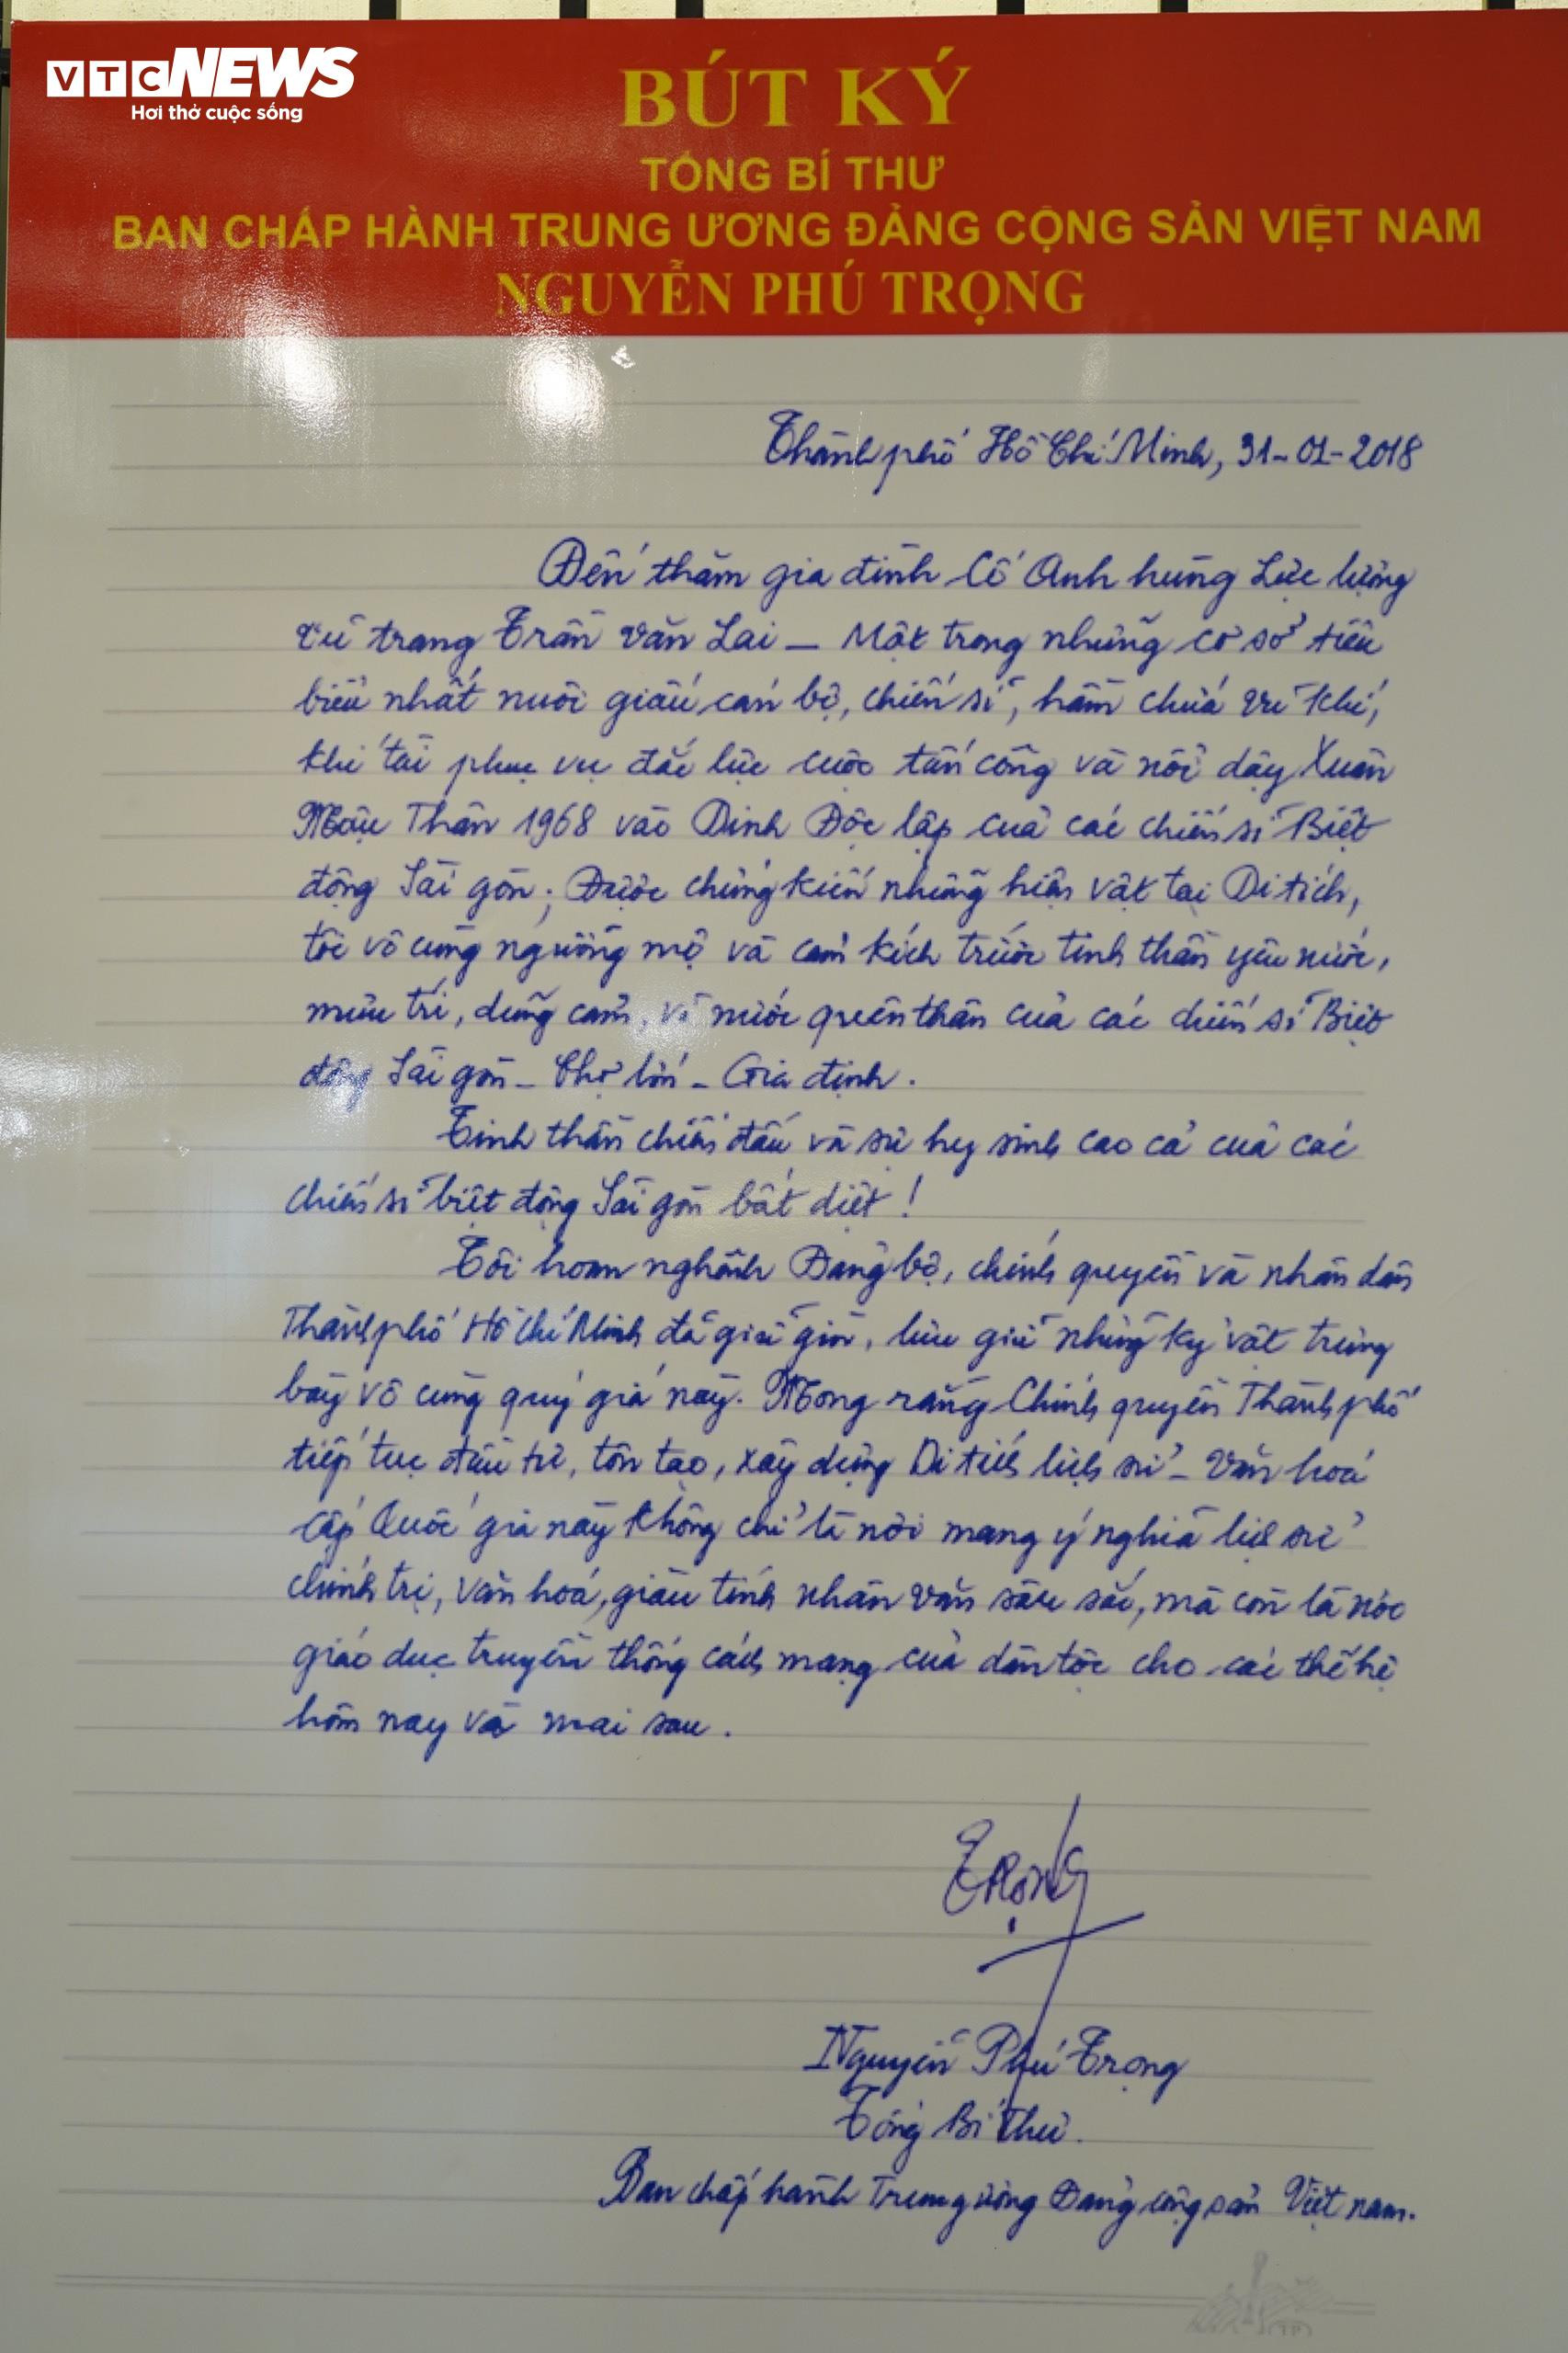 VTC NEWS
Hơi thở cuộc sống
BÚT KÝ
TỔNG BÍ THƯ
BAN CHẤP HÀNH TRUNG ƯƠNG ĐẢNG CỘNG SẢN VIỆT NAM
NGUYỄN PHÚ TRỌNG
Thành phố Hồ Chí Minh, 31-01-2018
Đến thăm gia đình Cố Anh hùng Lực lượng
vũ trang Trần Văn Lai – Một trong những cơ sở tiêu
biểu nhất nuôi giấu cán bộ, chiến sĩ, hầm chứa vũ khí,
khí tài phục vụ đắc lực cuộc tấn công và nổi dậy Xuân
Mậu Thân 1968 vào Dinh Độc lập của các chiến sĩ Biệt
động Sài gòn; Được chứng kiến những hiện vật tại Di tích,
tôi vô cùng ngưỡng mộ và cảm kích trước tinh thần yêu nước,
mưu trí, dũng cảm, vì nước quên thân của các chiến sĩ Biệt
động Sài gòn – Chợ lớn – Gia định.
Tinh thần chiến đấu và sự hy sinh cao cả của các
chiến sĩ biệt động Sài gòn bất diệt!
Tôi hoan nghênh Đảng bộ, chính quyền và nhân dân
Thành phố Hồ Chí Minh đã giữ gìn, lưu giữ những kỷ vật trưng
bày vô cùng quý giá này. Mong rằng Chính quyền Thành phố
tiếp tục đầu tư, tôn tạo, xây dựng Di tích lịch sử – Văn hoá
cấp Quốc gia này không chỉ là nơi mang ý nghĩa lịch sử
chính trị, văn hoá, giàu tính nhân văn sâu sắc, mà còn là nơi
giáo dục truyền thống cách mạng của dân tộc cho các thế hệ
hôm nay và mai sau.
Trọng
Nguyễn Phú Trọng
Tổng Bí Thư.
Ban chấp hành Trung ương Đảng cộng sản Việt nam.